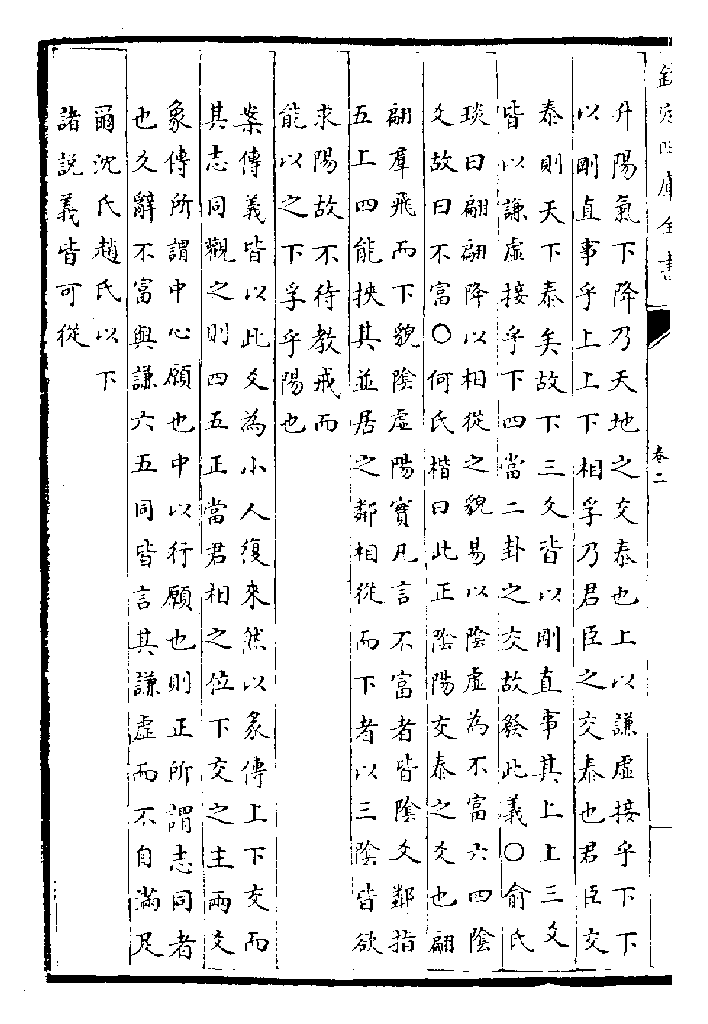 欽定四庫全書
卷二
升陽氣下降乃天地之交泰也上以謙虛接乎下下
以剛直事乎上上下相孚乃君臣之交泰也君臣交
泰則天下泰矣故下三爻皆以剛直事其上上三爻
皆以謙虛接乎下四當二卦之交故發此義○俞氏
琰曰翩翩降以相從之貌易以陰虛為不富六四陰
爻故曰不富○何氏楷曰此正陰陽交泰之爻也翩
翩羣飛而下貌陰虛陽實凡言不富者皆陰爻鄰指
五上四能挾其並居之鄰相從而下者以三陰皆欲
求陽故不待教戒而
能以之下孚乎陽也
案傳義皆以此爻為小人復來然以彖傳上下交而
其志同觀之則四五正當君相之位下交之主兩爻
象傳所謂中心願也中以行願也則正所謂志同者
也爻辭不富與謙六五同皆言其謙虛而不自滿足
爾沈氏趙氏以下
諸說義皆可從